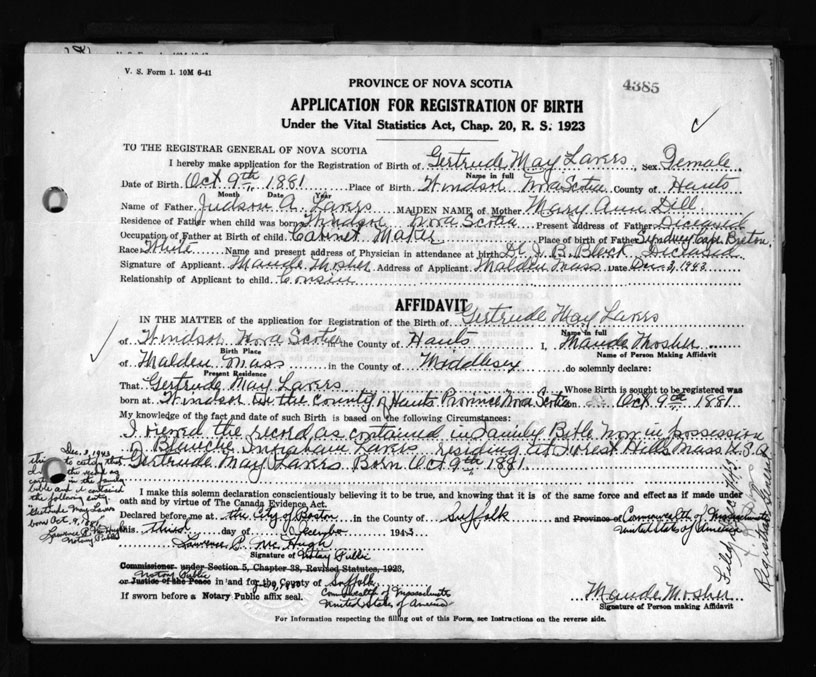 V. S. Form 1. 10M 6-41
4385
PROVINCE OF NOVA SCOTIA
APPLICATION FOR REGISTRATION OF BIRTH
Under the Vital Statistics Act, Chap. 20, R. S. 1923
TO THE REGISTRAR GENERAL OF NOVA SCOTIA
I hereby make application for the Registration of Birth of Gertrude May Lavers, Sex Female
Name in full
Date of Birth Oct 9th 1881 Place of Birth Windsor Nova Scotia County of Hants
Month Date Year
Name of Father Judson A. Lavers MAIDEN NAME of Mother Mary Ann Dill
Residence of Father when child was born Windsor Nova Scotia Present address of Father Diseased
Occupation of Father at Birth of child Cabinet Maker Place of birth of Father Sydney Cape Breton
Race White Name and present address of Physician in attendance at birth Dr. J. B. Black Deceased
Signature of Applicant Maude Mosher Address of Applicant Malden Mass. Date Dec 3, 1943
Relationship of Applicant to child Cousin
AFFIDAVIT
IN THE MATTER of the application for Registration of the Birth of Gertrude May Lavers
Name in full
of Windsor Nova Scotia in the County of Hants I, Maude Mosher
Birth Place Name of Person Making Affidavit
of Malden Mass in the County of Middlesex do solemnly declare:
Present Residence
That Gertrude May Lavers Whose Birth is sought to be registered was
born at Windsor in the County of Hants Province Nova Scotia on Oct 9th 1881
My knowledge of the fact and date of such Birth is based on the following Circumstances:
I viewed the record as contained in Family Bible now in possession
Blanche Ingraham Lavers residing at Forest Hills Mass U.S.A
Gertrude May Lavers Born Oct 9th 1881
Dec. 3, 1943
this to certify that
I the record as
in the family
bible and it contained
the following entry
"Gertrude May Laver
born Oct. 9, 1881"
Lawrence P. McHugh
Notary Public
I make this solemn declaration conscientiously believing it to be true, and knowing that it is of the same force and effect as if made under
oath and by virtue of The Canada Evidence Act.
Declared before me at the City of Boston in the County of Suffolk and Province of Commonwealth of Massachusetts
United States of America
this third day of December 1943
Lawrence P. McHugh
Signature of Notary Public
Commissioner under Section 5, Chapter 38, Revised Statutes, 1923,
Notary Public
or Justice of the Peace in and for the County of Suffolk
Commonwealth of Massachusetts
If sworn before a Notary Public affix seal. United States of America
Maude Mosher
Signature of Person making Affidavit
For Information respecting the filling out of this Form, see Instructions on the reverse side.